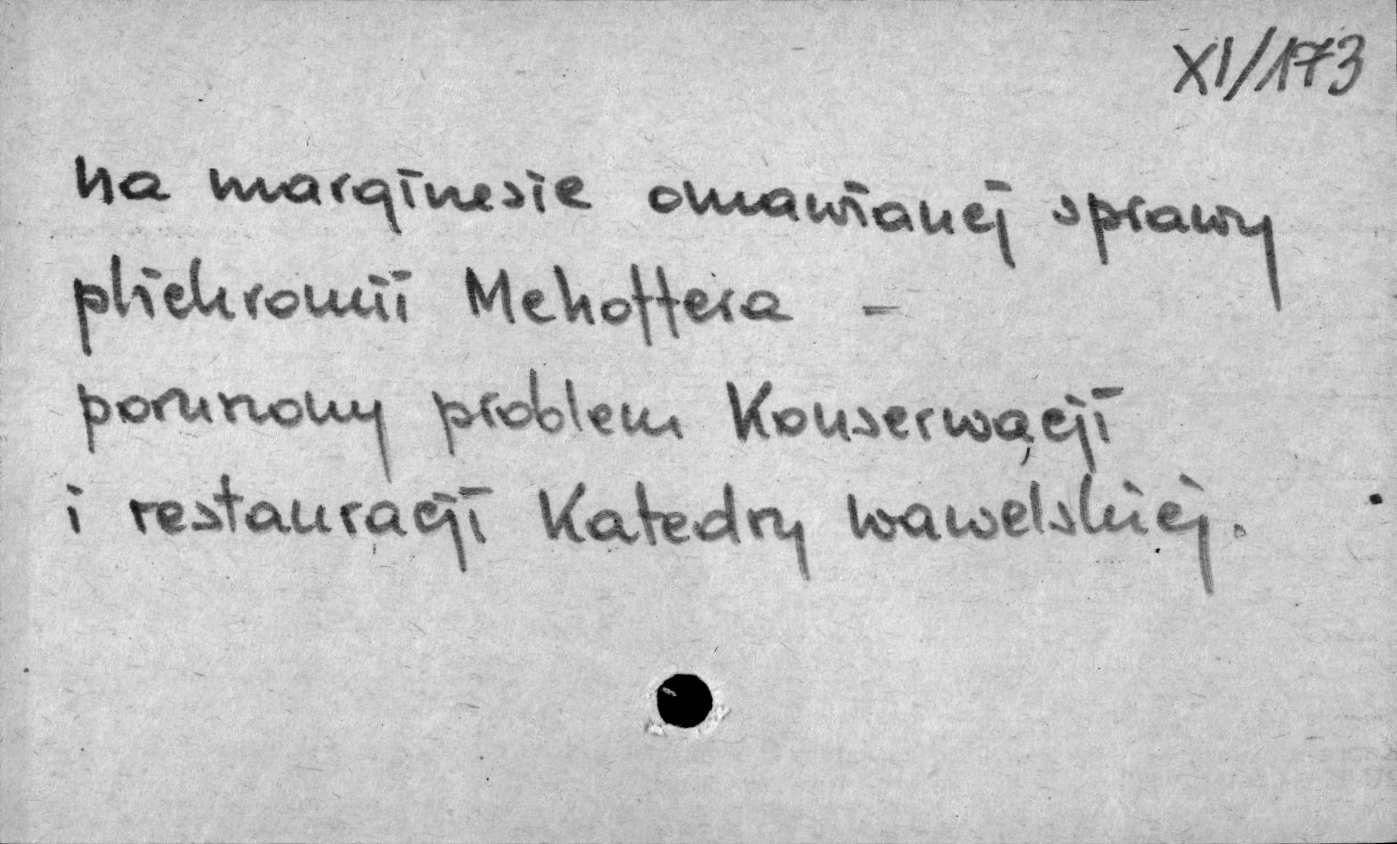 XI/173
na marginesie omawianej sprawy
plichromii Mehoffera -
poruszony problem Konserwacji
i restauracji Katedry wawelskiej.